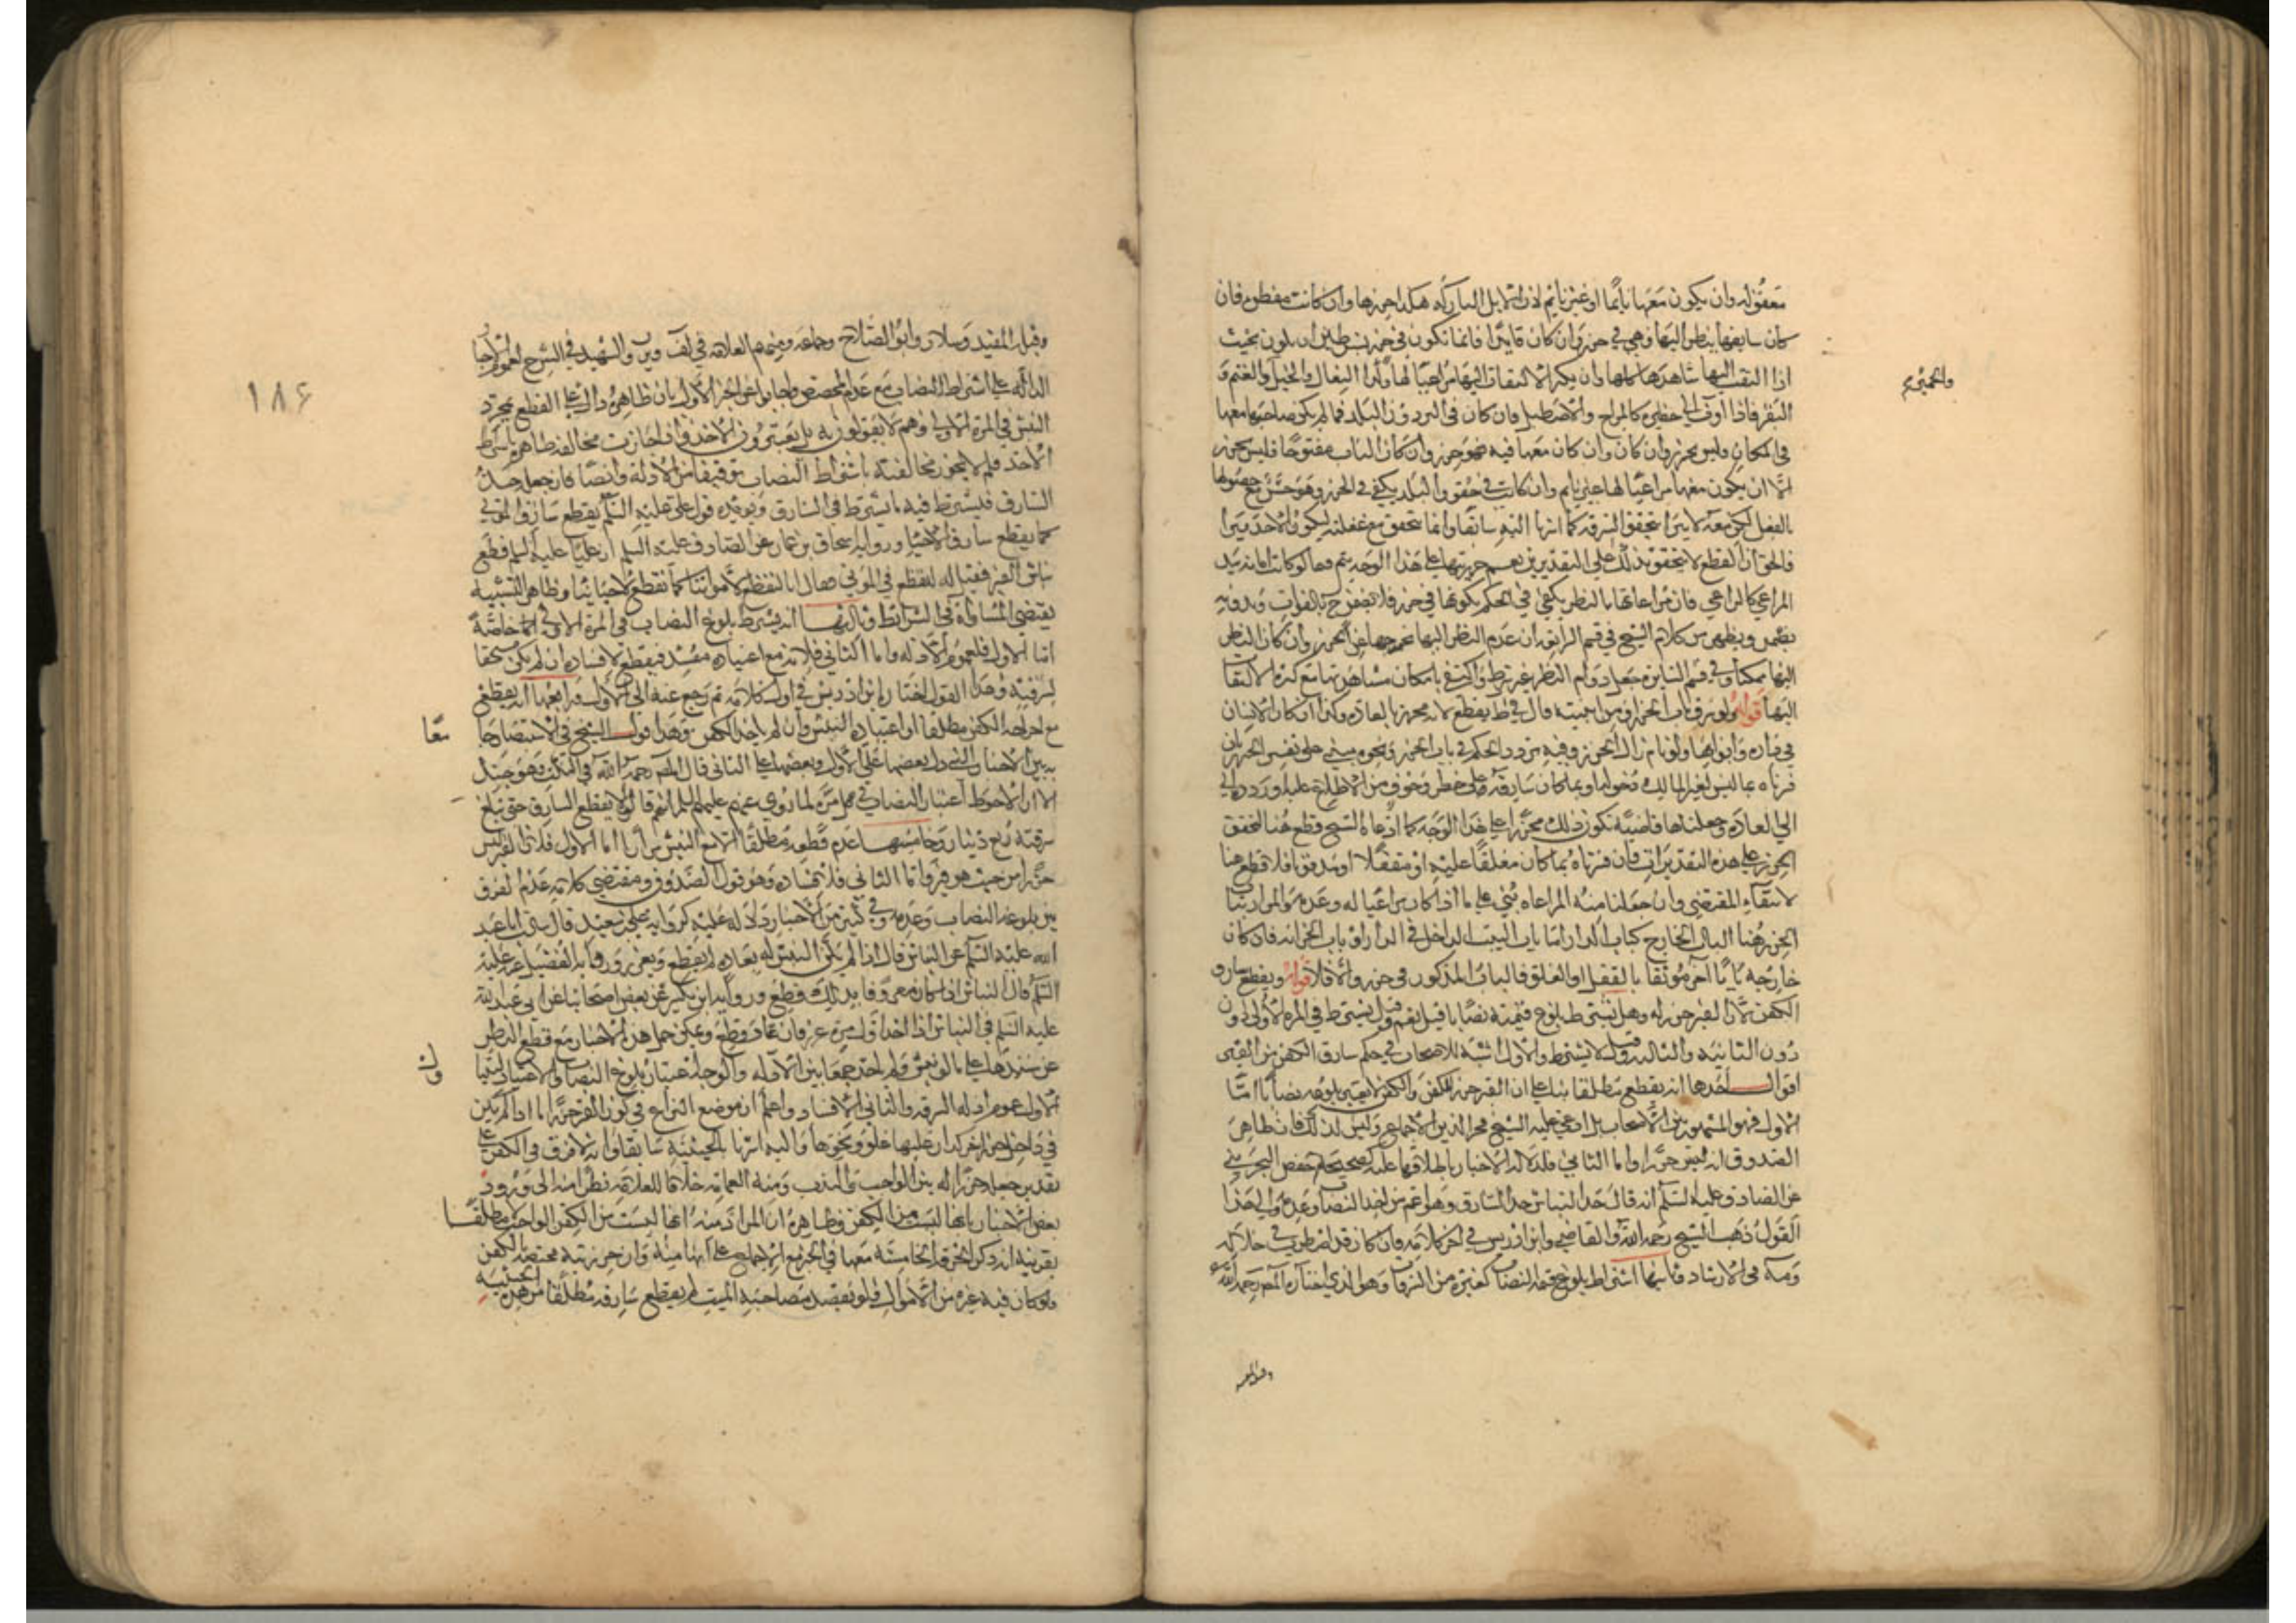 معقولة وان يكون معها نائما او غير نايم لان الابل الباركة هكذا حرزها وان كانت مقطورة فان
كان سايقها ينظر اليها فهي في حرز وان كان قايدا فانما تكون في حرز بشرطين ان يكون بحيث
اذا التفت اليها شاهدها كلها وان يكثر الالتفات اليها مراعيا لها وأما البغال والخيل والغنم و
والحمير
البقر فاذا آوت الى حظيرة كالمراح والاصطبل فان كان في البر دون البلد فما لم يكن صاحبها معها
في المكان فليس بحرز وان كان وان كان معها فيه فهو حرز وان كان الباب مفتوحا فليس بحرز
الا ان يكون معها مراعيا لها غير نايم وان كانت في
بالفعل لكن معه لا يتحقق السرقة كما اشرنا اليه سابقا وانما تتحقق مع غفلته ليكون الاخذ سرا
فالحق ان القطع لا يتحقق بذلك على التقديرين نعم حرزيتها على هذا الوجه يتم
المراعي كالراعي فان مراعاتها بالنظر يكفي في الحكم بكونها في حرز فلا
يضمن ويظهر من كلام الشيخ في قسم الراتعة ان عدم النظر اليها يخرجها عن الحرز وان كان النظر
اليها ممكنا وفي قسم السايرة جعل دوام النظر غير شرط واكتفى بامكان مشاهدتها مع كثرة الالتفات
اليها قوله ولو سرق باب الحرز او من ابنيته قال في ط يقطع لانه محرز بالعادة وكذا ان كان الانسان
في داره وابوابها ولو نام زال الحرز وفيه تردد الحكم في باب الحرز ونحوه مبني على تفسير الحرز فان
فسرناه بما ليس لغير المالك دخوله او بما كان سارقه على خطر وخوف من الاطلاع عليه او رددناه الى
الى العادة وجعلناها قاضية بكون ذلك محرزا على هذا الوجه كما ادعاه الشيخ قطع هنا لتحقق
الحرز على هذه التقديرات فان فسرناه بما كان مغلقا عليه او مقفلا او مدفونا فلا قطع هنا
لانتفاء المقتضي وان جعلنا منه المراعاة بني على ما اذا كان مراعيا له وعدمه والمراد بباب
الحرز هنا الباب الخارج كباب الدار اما باب البيت الداخل في الدار او باب الخزانة فان كان
خارجه بابا آخر موثقا بالقفل او الغلق فالباب المذكور في حرز والا فلا قوله ويقطع سارق
الكفن لان القبر حرز له وهل يشترط بلوغ قيمته نصابا قيل نعم وقيل يشترط في المرة الاولى دون
دون الثانية والثالثة وقيل لا يشترط والاول اشبه للاصحاب في حكم سارق الكفن من القبر
اقوال احدها انه يقطع مطلقا بناء على ان القبر حرز للكفن والكفن لا يعتبر بلوغه نصابا اما
الاول فهو المشهور بين الاصحاب بل ادعى عليه الشيخ فخر الدين الاجماع وليس لذلك فان ظاهر
الصدوق انه ليس حرزا واما الثاني فلدلالة الاخبار باطلاقها عليه كصحيحة حفص البختري
عن الصادق عليه السلم انه قال حد النباش حد السارق وهو اعم من اخذ النصاب وعدمه والى هذا
القول ذهب الشيخ رحمه الله والقاضي وابن ادريس في اخر كلامه وان كان قد اضطرب في خلاله
ومه في الارشاد وثانيها اشتراط بلوغ قيمته النصاب كغيره من السرقات وهو الذي اختاره المصر رحمه الله
وقبله المفيد
١٨٤
وقبله المفيد وسلار وابو الصلاح وجماعة ومنهم العلامة في لف ويره والشهيد في الشرح لعموم الاخبار
الدالة على اشتراط النصاب مع عدم المخصص واجابوا عن الخبر الاول بان ظاهره دال على القطع بمجرد
النبش في المرة الاولى وهم لا يقولون به بل يعتبرون الاخذ فان جازت مخالفة ظاهره باشتراط
الاخذ فلم لا يجوز مخالفته باشتراط النصاب توفيقا من الادلة وايضا فان جعل حده
السارق فيشترط فيه ما يشترط في السارق ويؤيده قول علي عليه السلم يقطع سارق الموتى
كما يقطع سارق الاحيا ورواية اسحاق بن عمار عن الصادق عليه السلم ان عليا عليه السلم قطع
نباش القبر فقيل له انقطع في الموتى فقال انا لنقطع لامواتنا كما نقطع لاحيائنا وظاهر التشبيه
يقتضي المساواة في الشرائط وثالثها انه يشترط بلوغ النصاب في المرة الاولى خاصة
اما الاول فلعموم الادلة واما الثاني فلانه مع اعتياده مفسد فيقطع لافساده ان لم يكن مستحقا
لسرقته وهذا القول اختاره ابن ادريس في اول كلامه ثم رجع عنه الى الاول ورابعها انه يقطع
مع اخراجه الكفن مطلقا او اعتياده النبش وان لم ياخذ الكفن وهذا قول الشيخ في الاستبصار جامعا
به بين الاخبار التي دل بعضها على الاول وبعضها على الثاني قال المصر رحمه الله في النكت وهو جيد
الا ان الاحوط اعتبار النصاب في كل مرة لما روي عنهم عليهم السلم انهم قالوا لا يقطع السارق حتى تبلغ
سرقته ربع دينار وخامسها عدم قطعه مطلقا الا مع النبش مرارا اما الاول فلان القبر ليس
حرزا من حيث هو قبر واما الثاني فلافساده وهو قول الصدوق ومقتضى كلامه عدم الفرق
بين بلوغه النصاب وعدمه وفي كثير من الاخبار دلالة عليه كرواية علي بن سعيد قال سالت ابا عبد
الله عليه السلم عن النباش قال اذا لم يكن النبش له بعادة لم يقطع ويعزر ورواية الفضيل عنه عليه
السلم قال النباش اذا كان معروفا بذلك قطع ورواية ابن بكير عن بعض اصحابنا عن ابي عبد الله
عليه السلم في النباش اذا اخذ اول مرة عزر فان عاد قطع ويمكن حمل هذه الاخبار مع قطع النظر
عن سندها على ما لو نبش ولم ياخذ جمعا بين الادلة والوجه اعتبار بلوغ النصاب او الاعتياد لنا
الاول عموم ادلة السرقة والثاني الافساد واعلم ان موضع النزاع في كون القبر حرزا ما اذا لم يكن
في داخل حرز اخر كدار عليها غلق ونحوها واليه اشرنا بالحيثية سابقا وانه لا فرق في الكفن على
تقدير جعله حرزا له بين الواجب والندب ومنه العمامة خلافا للعلامة نظرا منه الى ورود
بعض الاخبار بانها ليست من الكفن وظاهره ان المراد منه انها ليست من الكفن الواجب مطلقا
بقرينة انه ذكر الخرقة الخامسة معها في الخبر مع الاجماع على انها منه وان حرزيته مختصة بالكفن
فلو كان فيه غيره من الاموال فلو بقصد مصاحبة الميت لم يقطع سارقه مطلقا من هذه الحيثية